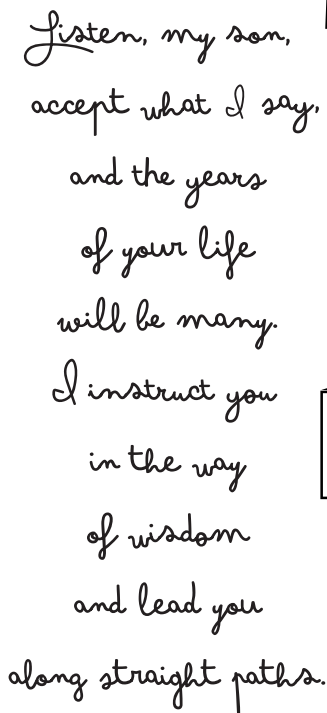 Listen, my son,
accept what I say,
and the years
of your life
will be many.
I instruct you
in the way
of wisdom
and lead you
along straight paths.